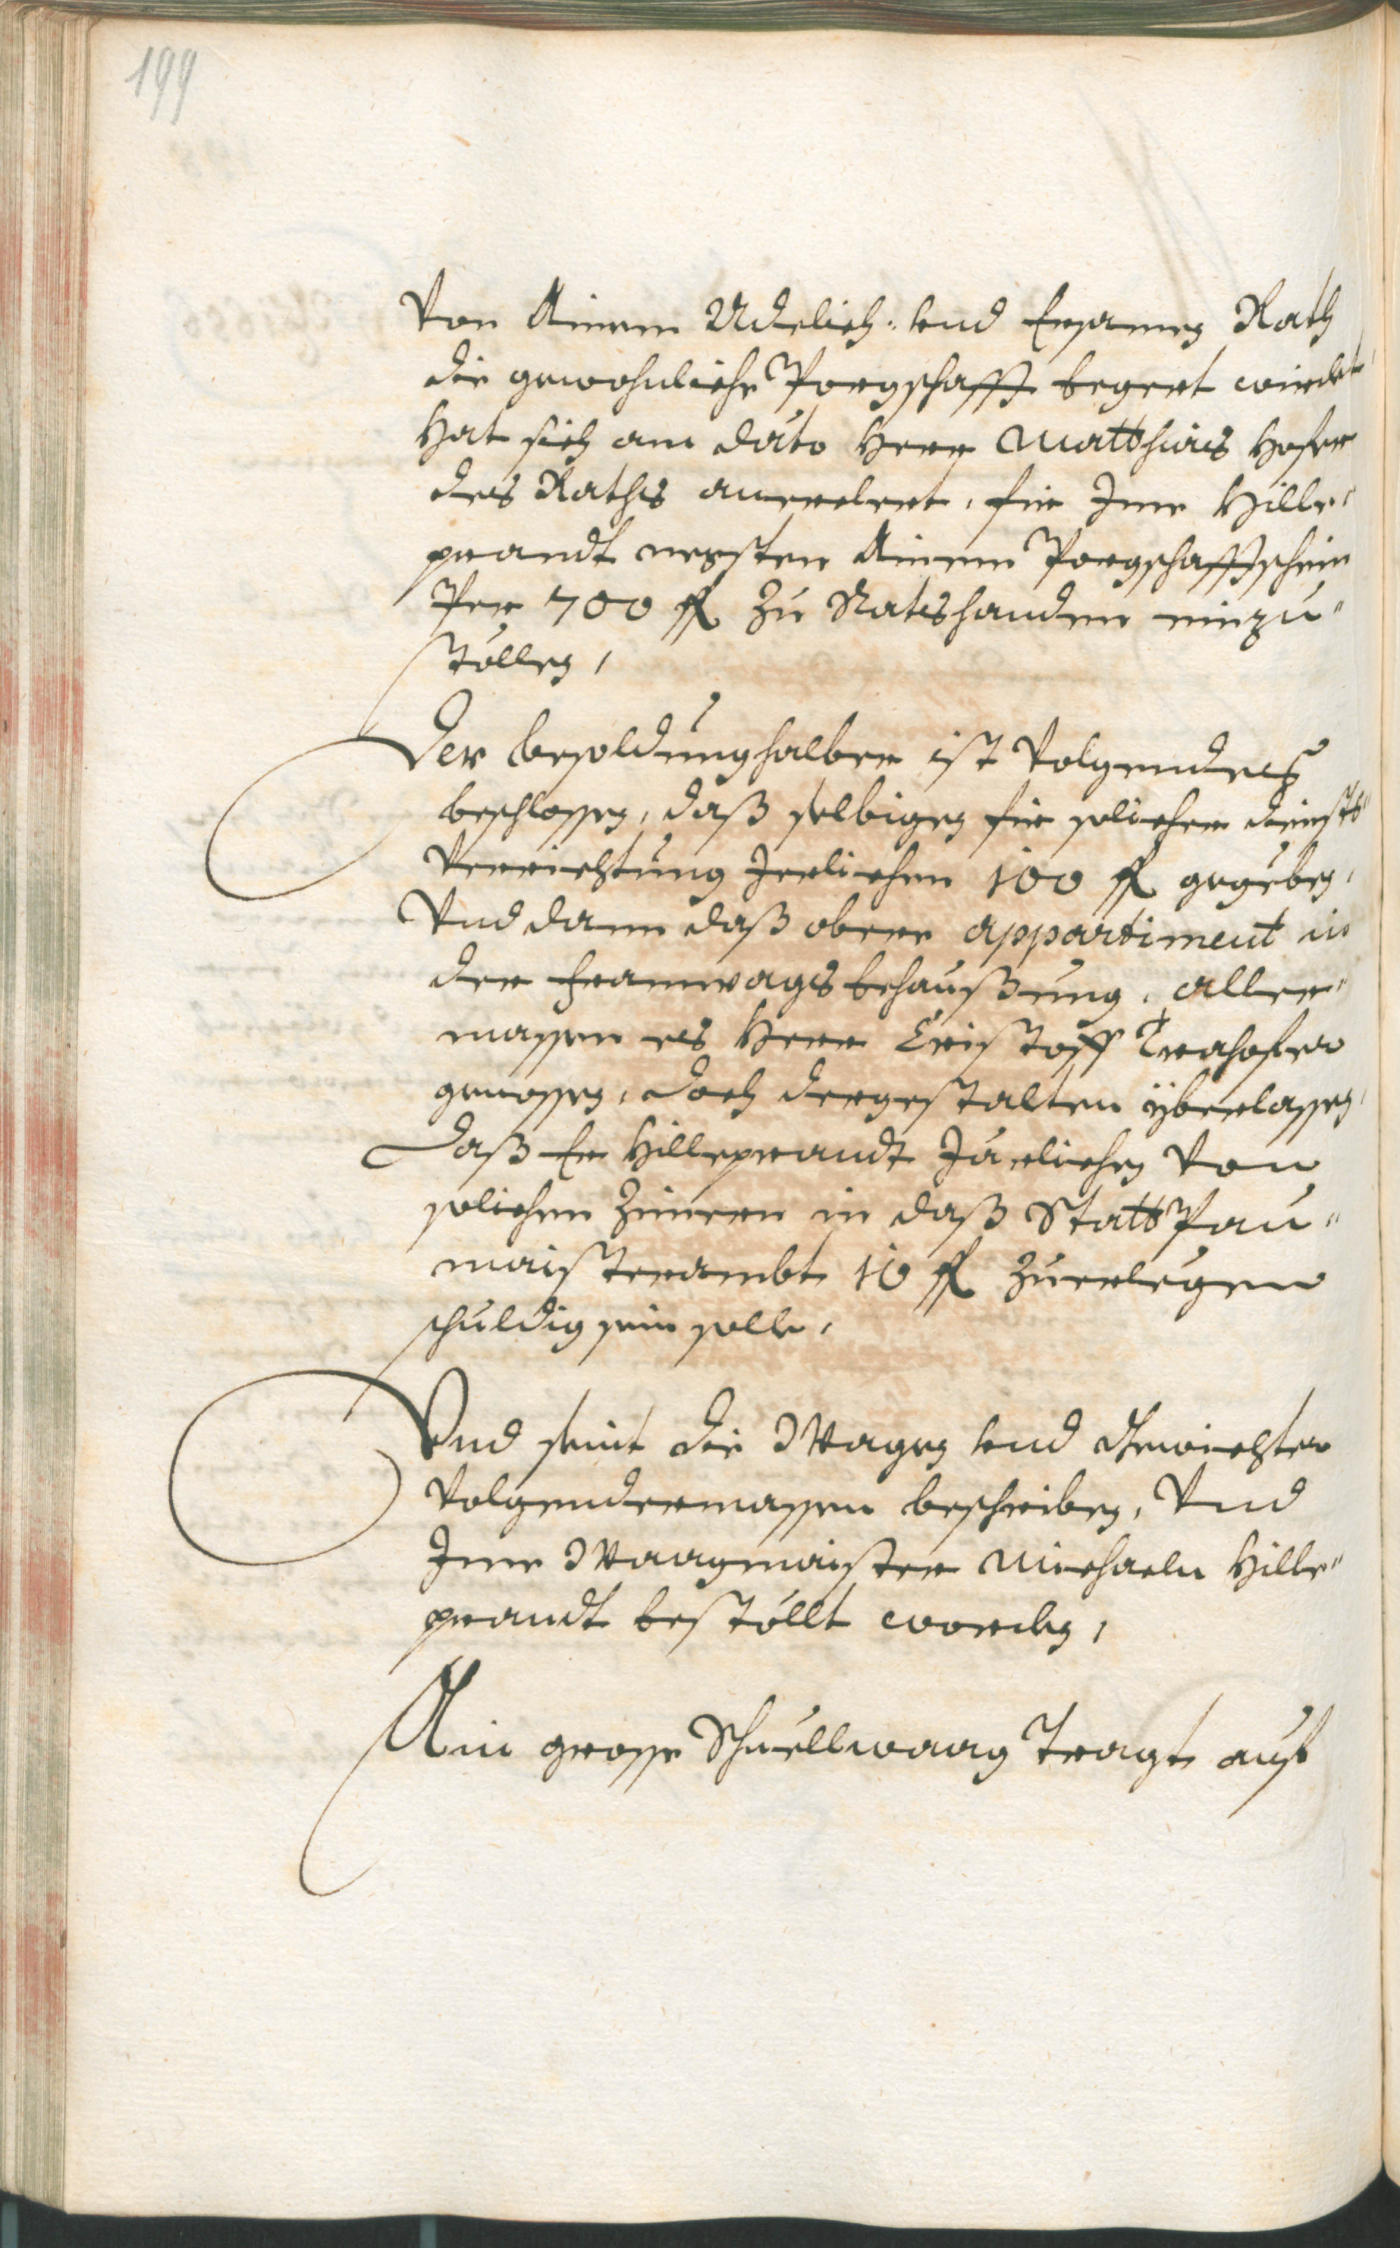 199
Von Ainem Adelich: vnd Ersamen Rath
die gewohnliche Porgschafft begert wirdet
Hat sich am dato Herr Matthias Hofer
des Raths anerclert, fir Ime Hille"
prandt negsten Ainen Porgschafftschein
Per 700 fl zu Ratshanden einzu"
stöllen,
Der besoldung halber ist Volgendes
beschlossen, daß selbigen fir solicher diensts
Verrichtung Jerlichen 100 fl gegeben,
Vnd dann daß obere appartiment in
der framwags behaußung, aller"
massen es Herr Cristoff Trahofer
genossen, doch dergestalten überlassen,
daß Er Hilleprandt Järlichen von
solichen Zimern in daß Statt Pau"
maisterambt 10 fl zuerlegen
schuldig sein solle,
Vnd seint die Wagen vnd Gewichter
Volgendermassen beschriben, Vnd
Ime Waagmaister Michaeln Hille"
prandt bestöllt worden,
Ain grosse Schnellwaag Tragt auf